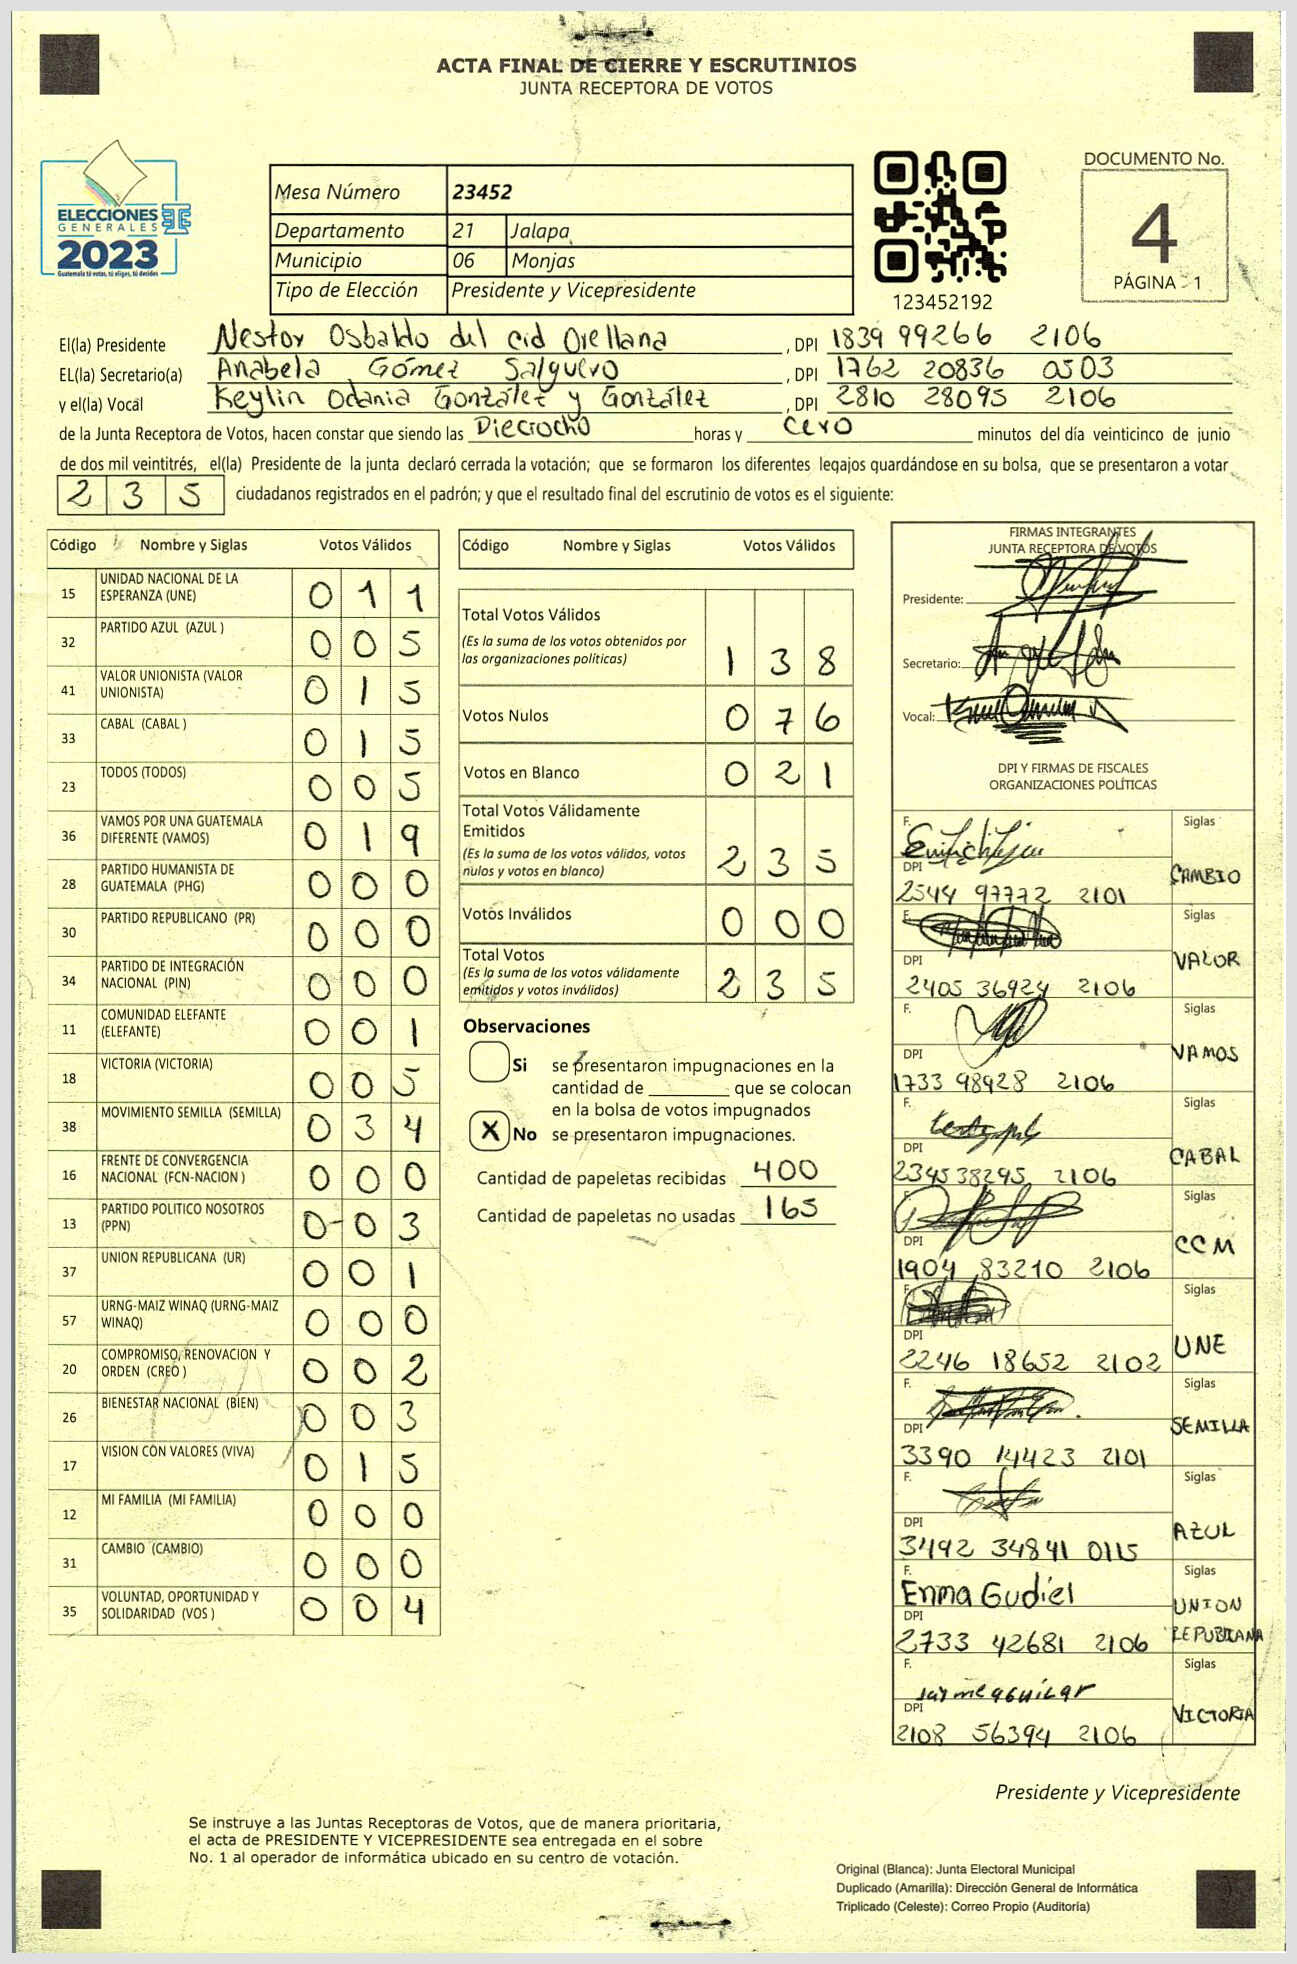 ACTA FINAL DE CIERRE Y ESCRUTINIOS
JUNTA RECEPTORA DE VOTOS
ELECCIONES
GENERALES
2023
Guatemala tú votas, tú eliges, tú decides
Mesa Número 23452
Departamento 21 Jalapa
Municipio 06 Monjas
Tipo de Elección Presidente y Vicepresidente
123452192
DOCUMENTO No.
4
PÁGINA - 1
El(la) Presidente Nestor Osbaldo del Cid Orellana , DPI 1839 99266 2106
EL(la) Secretario(a) Anabela Gómez Salguero , DPI 1762 20836 0503
y el(la) Vocál Keylin Odania González y González , DPI 2810 28095 2106
de la Junta Receptora de Votos, hacen constar que siendo las Dieciocho horas y cero minutos del día veinticinco de junio
de dos mil veintitrés, el(la) Presidente de la junta declaró cerrada la votación; que se formaron los diferentes legajos guardándose en su bolsa, que se presentaron a votar
2 3 5 ciudadanos registrados en el padrón; y que el resultado final del escrutinio de votos es el siguiente:
Código Nombre y Siglas Votos Válidos
15 UNIDAD NACIONAL DE LA
ESPERANZA (UNE) 0 1 1
32 PARTIDO AZUL (AZUL ) 0 0 5
41 VALOR UNIONISTA (VALOR
UNIONISTA) 0 1 5
33 CABAL (CABAL ) 0 1 5
23 TODOS (TODOS) 0 0 5
36 VAMOS POR UNA GUATEMALA
DIFERENTE (VAMOS) 0 1 9
28 PARTIDO HUMANISTA DE
GUATEMALA (PHG) 0 0 0
30 PARTIDO REPUBLICANO (PR) 0 0 0
34 PARTIDO DE INTEGRACIÓN
NACIONAL (PIN) 0 0 0
11 COMUNIDAD ELEFANTE
(ELEFANTE) 0 0 1
18 VICTORIA (VICTORIA) 0 0 5
38 MOVIMIENTO SEMILLA (SEMILLA) 0 3 4
16 FRENTE DE CONVERGENCIA
NACIONAL (FCN-NACION ) 0 0 0
13 PARTIDO POLITICO NOSOTROS
(PPN) 0 0 3
37 UNION REPUBLICANA (UR) 0 0 1
57 URNG-MAIZ WINAQ (URNG-MAIZ
WINAQ) 0 0 0
20 COMPROMISO, RENOVACION Y
ORDEN (CREO ) 0 0 2
26 BIENESTAR NACIONAL (BIEN) 0 0 3
17 VISION CON VALORES (VIVA) 0 1 5
12 MI FAMILIA (MI FAMILIA) 0 0 0
31 CAMBIO (CAMBIO) 0 0 0
35 VOLUNTAD, OPORTUNIDAD Y
SOLIDARIDAD (VOS ) 0 0 4
Código Nombre y Siglas Votos Válidos
Total Votos Válidos
(Es la suma de los votos obtenidos por
las organizaciones políticas) 1 3 8
Votos Nulos 0 7 6
Votos en Blanco 0 2 1
Total Votos Válidamente
Emitidos
(Es la suma de los votos válidos, votos
nulos y votos en blanco) 2 3 5
Votos Inválidos 0 0 0
Total Votos
(Es la suma de los votos válidamente
emitidos y votos inválidos) 2 3 5
Observaciones
Si se presentaron impugnaciones en la
cantidad de ________ que se colocan
en la bolsa de votos impugnados
X No se presentaron impugnaciones.
Cantidad de papeletas recibidas 400
Cantidad de papeletas no usadas 165
FIRMAS INTEGRANTES
JUNTA RECEPTORA DE VOTOS
Presidente:
Secretario:
Vocal:
DPI Y FIRMAS DE FISCALES
ORGANIZACIONES POLÍTICAS
F. Siglas
DPI CAMBIO
2544 97772 2101
F. Siglas
DPI VALOR
2405 36924 2106
F. Siglas
DPI VAMOS
1733 98928 2106
F. Siglas
DPI CABAL
2345 38295 2106
F. Siglas
DPI CCM
1904 83210 2106
F. Siglas
DPI UNE
2246 18652 2102
F. Siglas
DPI SEMILLA
3390 14423 2101
F. Siglas
DPI AZUL
3492 34841 0115
F. Enma Gudiel Siglas
DPI UNION
REPUBLICANA
2733 42681 2106
F. Jayme aguilar Siglas
DPI VICTORIA
2108 56394 2106
Presidente y Vicepresidente
Se instruye a las Juntas Receptoras de Votos, que de manera prioritaria,
el acta de PRESIDENTE Y VICEPRESIDENTE sea entregada en el sobre
No. 1 al operador de informática ubicado en su centro de votación.
Original (Blanca): Junta Electoral Municipal
Duplicado (Amarilla): Dirección General de Informática
Triplicado (Celeste): Correo Propio (Auditoría)